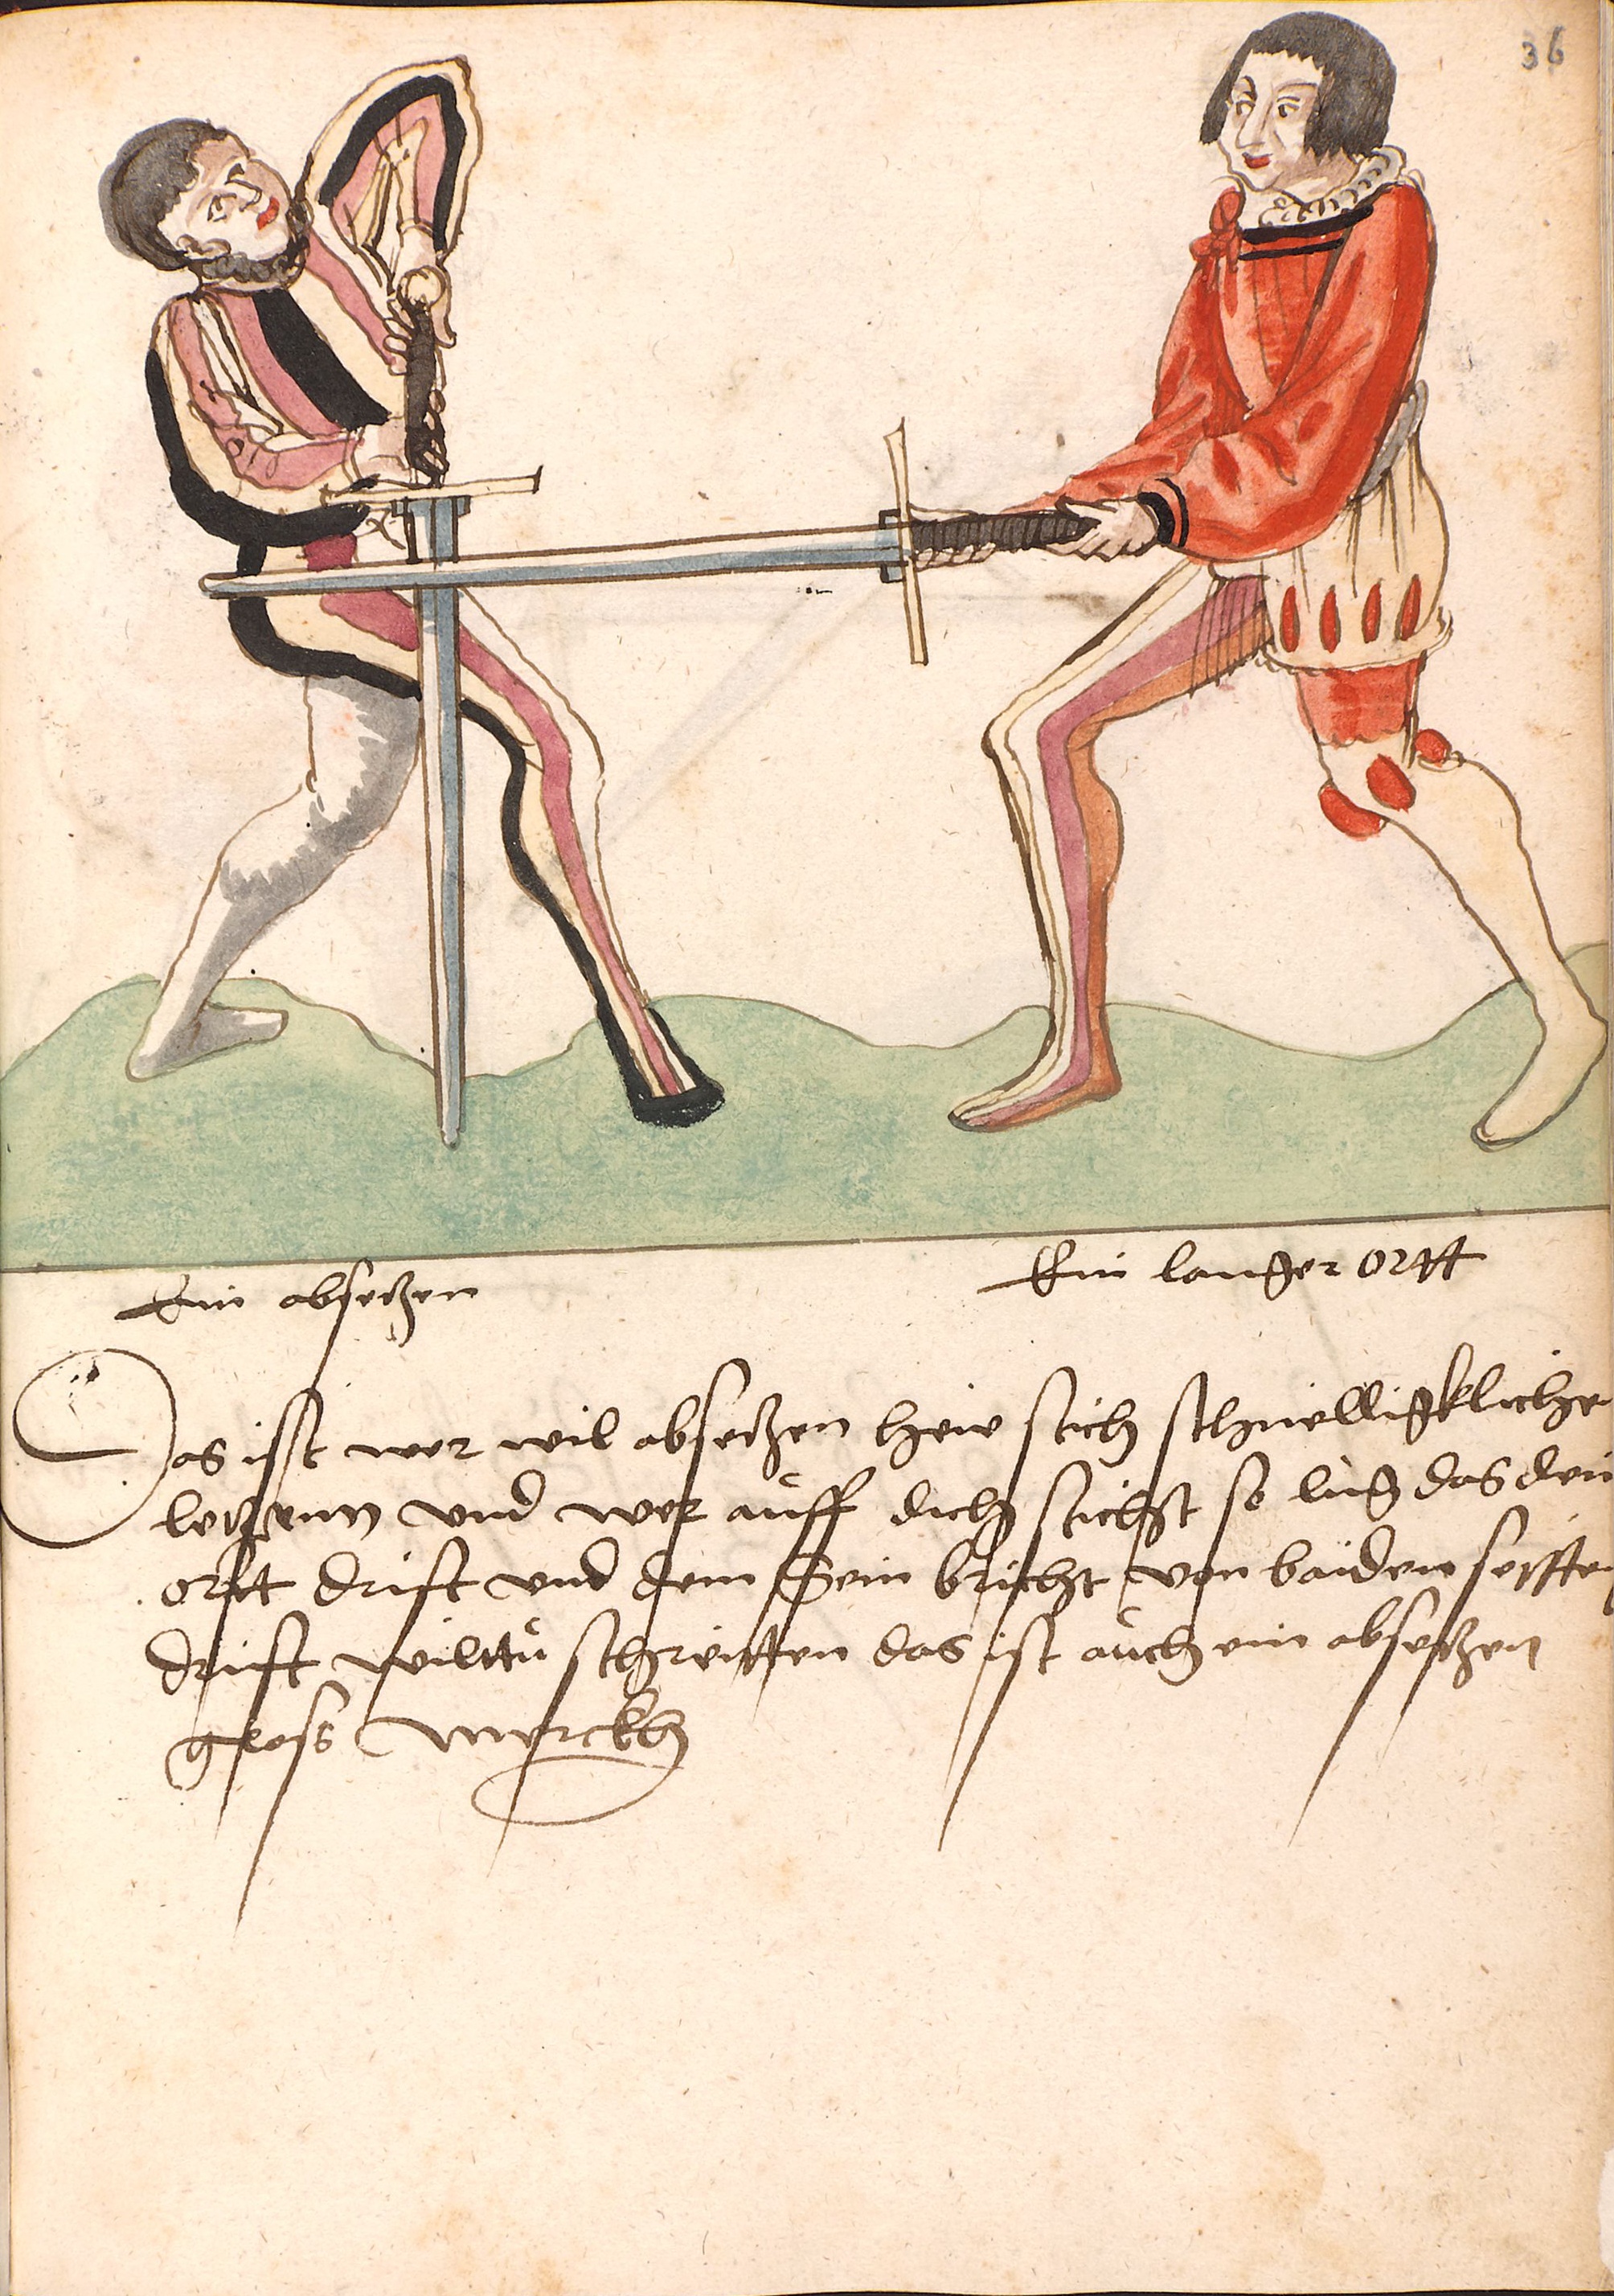 36
Ein abseczen
Ein langer ortt
Das isst wer wil abseczen heiw stich schnelligkliche
leczenn vnd wer auff dich sticht so lug das dein
ortt drift vnd dem Sein bricht von baiden seitten
drift wilttu schreitten das ist auch ein abseczen
gloss Merckh